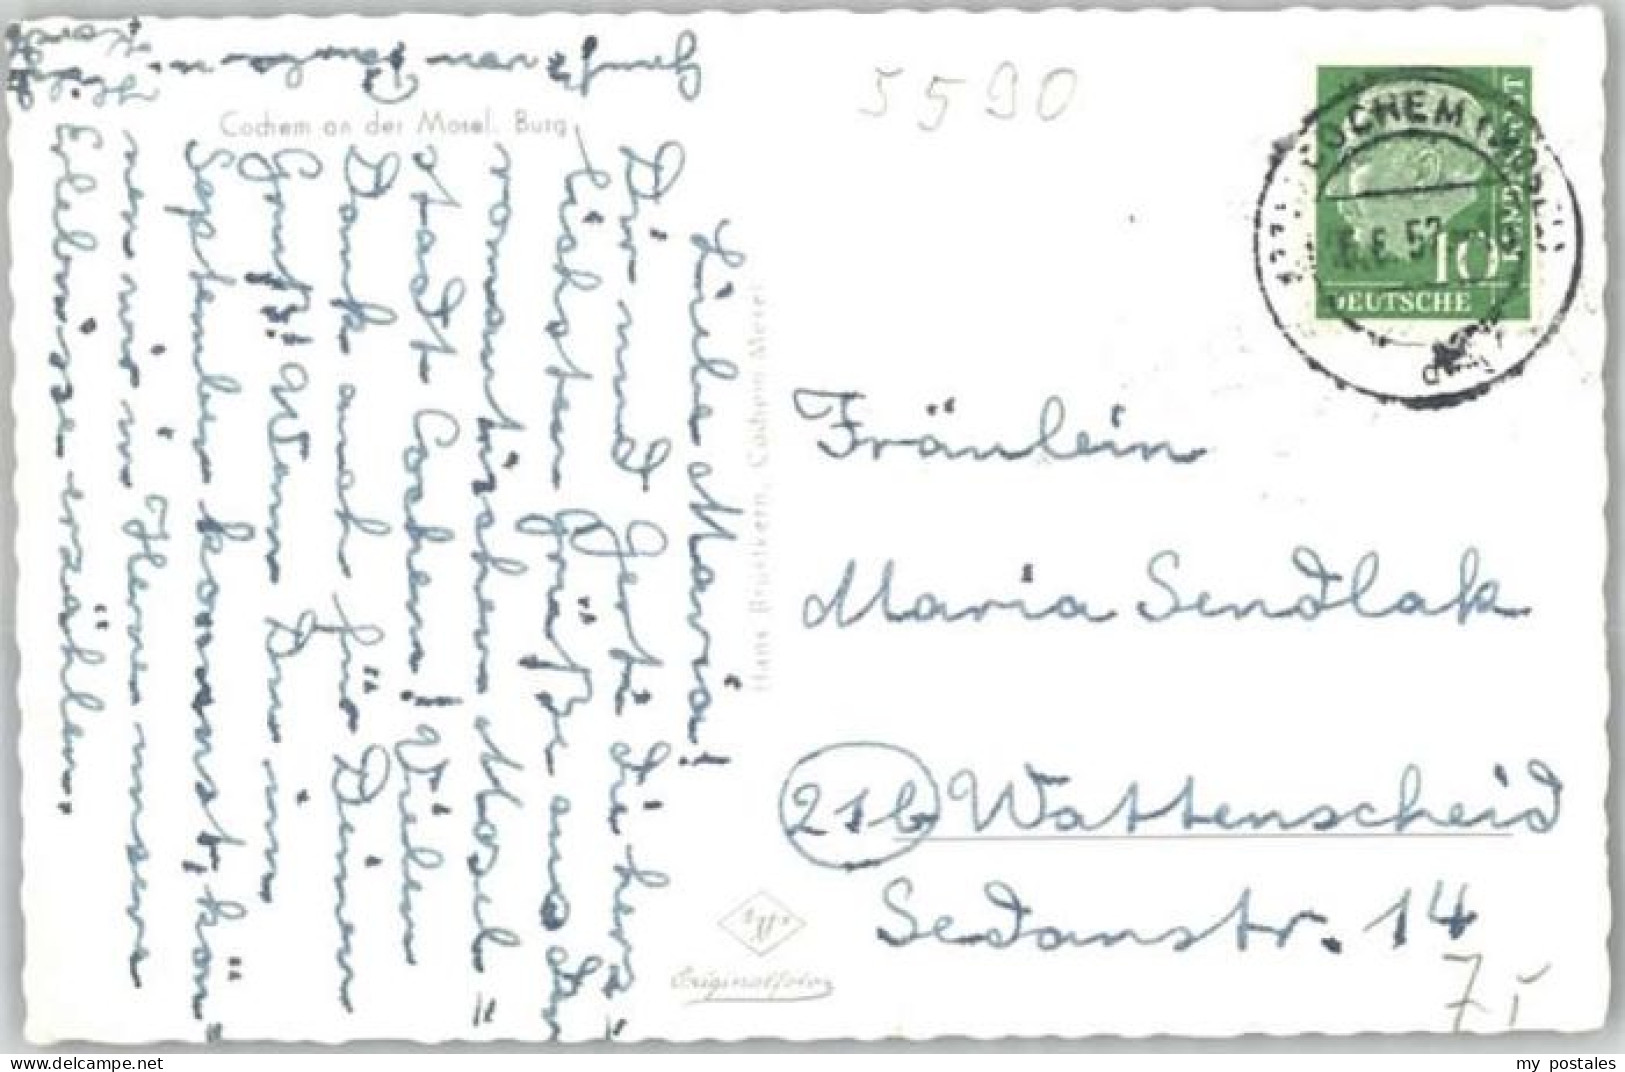 Cochem an der Mosel. Burg
5590
Liebe Maria!
Dir und Gerti die herz=
lichsten Grüße aus der
romantischen Mosel=
stadt Cochem! Vielen
Dank auch für Deinen
Gruß! Wenn Du im
September kommst, kön=
nen wir in Herne unsere
Erlebnisse erzählen.
Hans Brütkern, Cochem-Mosel
Agfa
Originalfoto
COCHEM (MOSEL)
6.57
10
DEUTSCHE
BUNDESPOST
Fräulein
Maria Sendlak
21b Wattenscheid
Sedanstr. 14
my postales